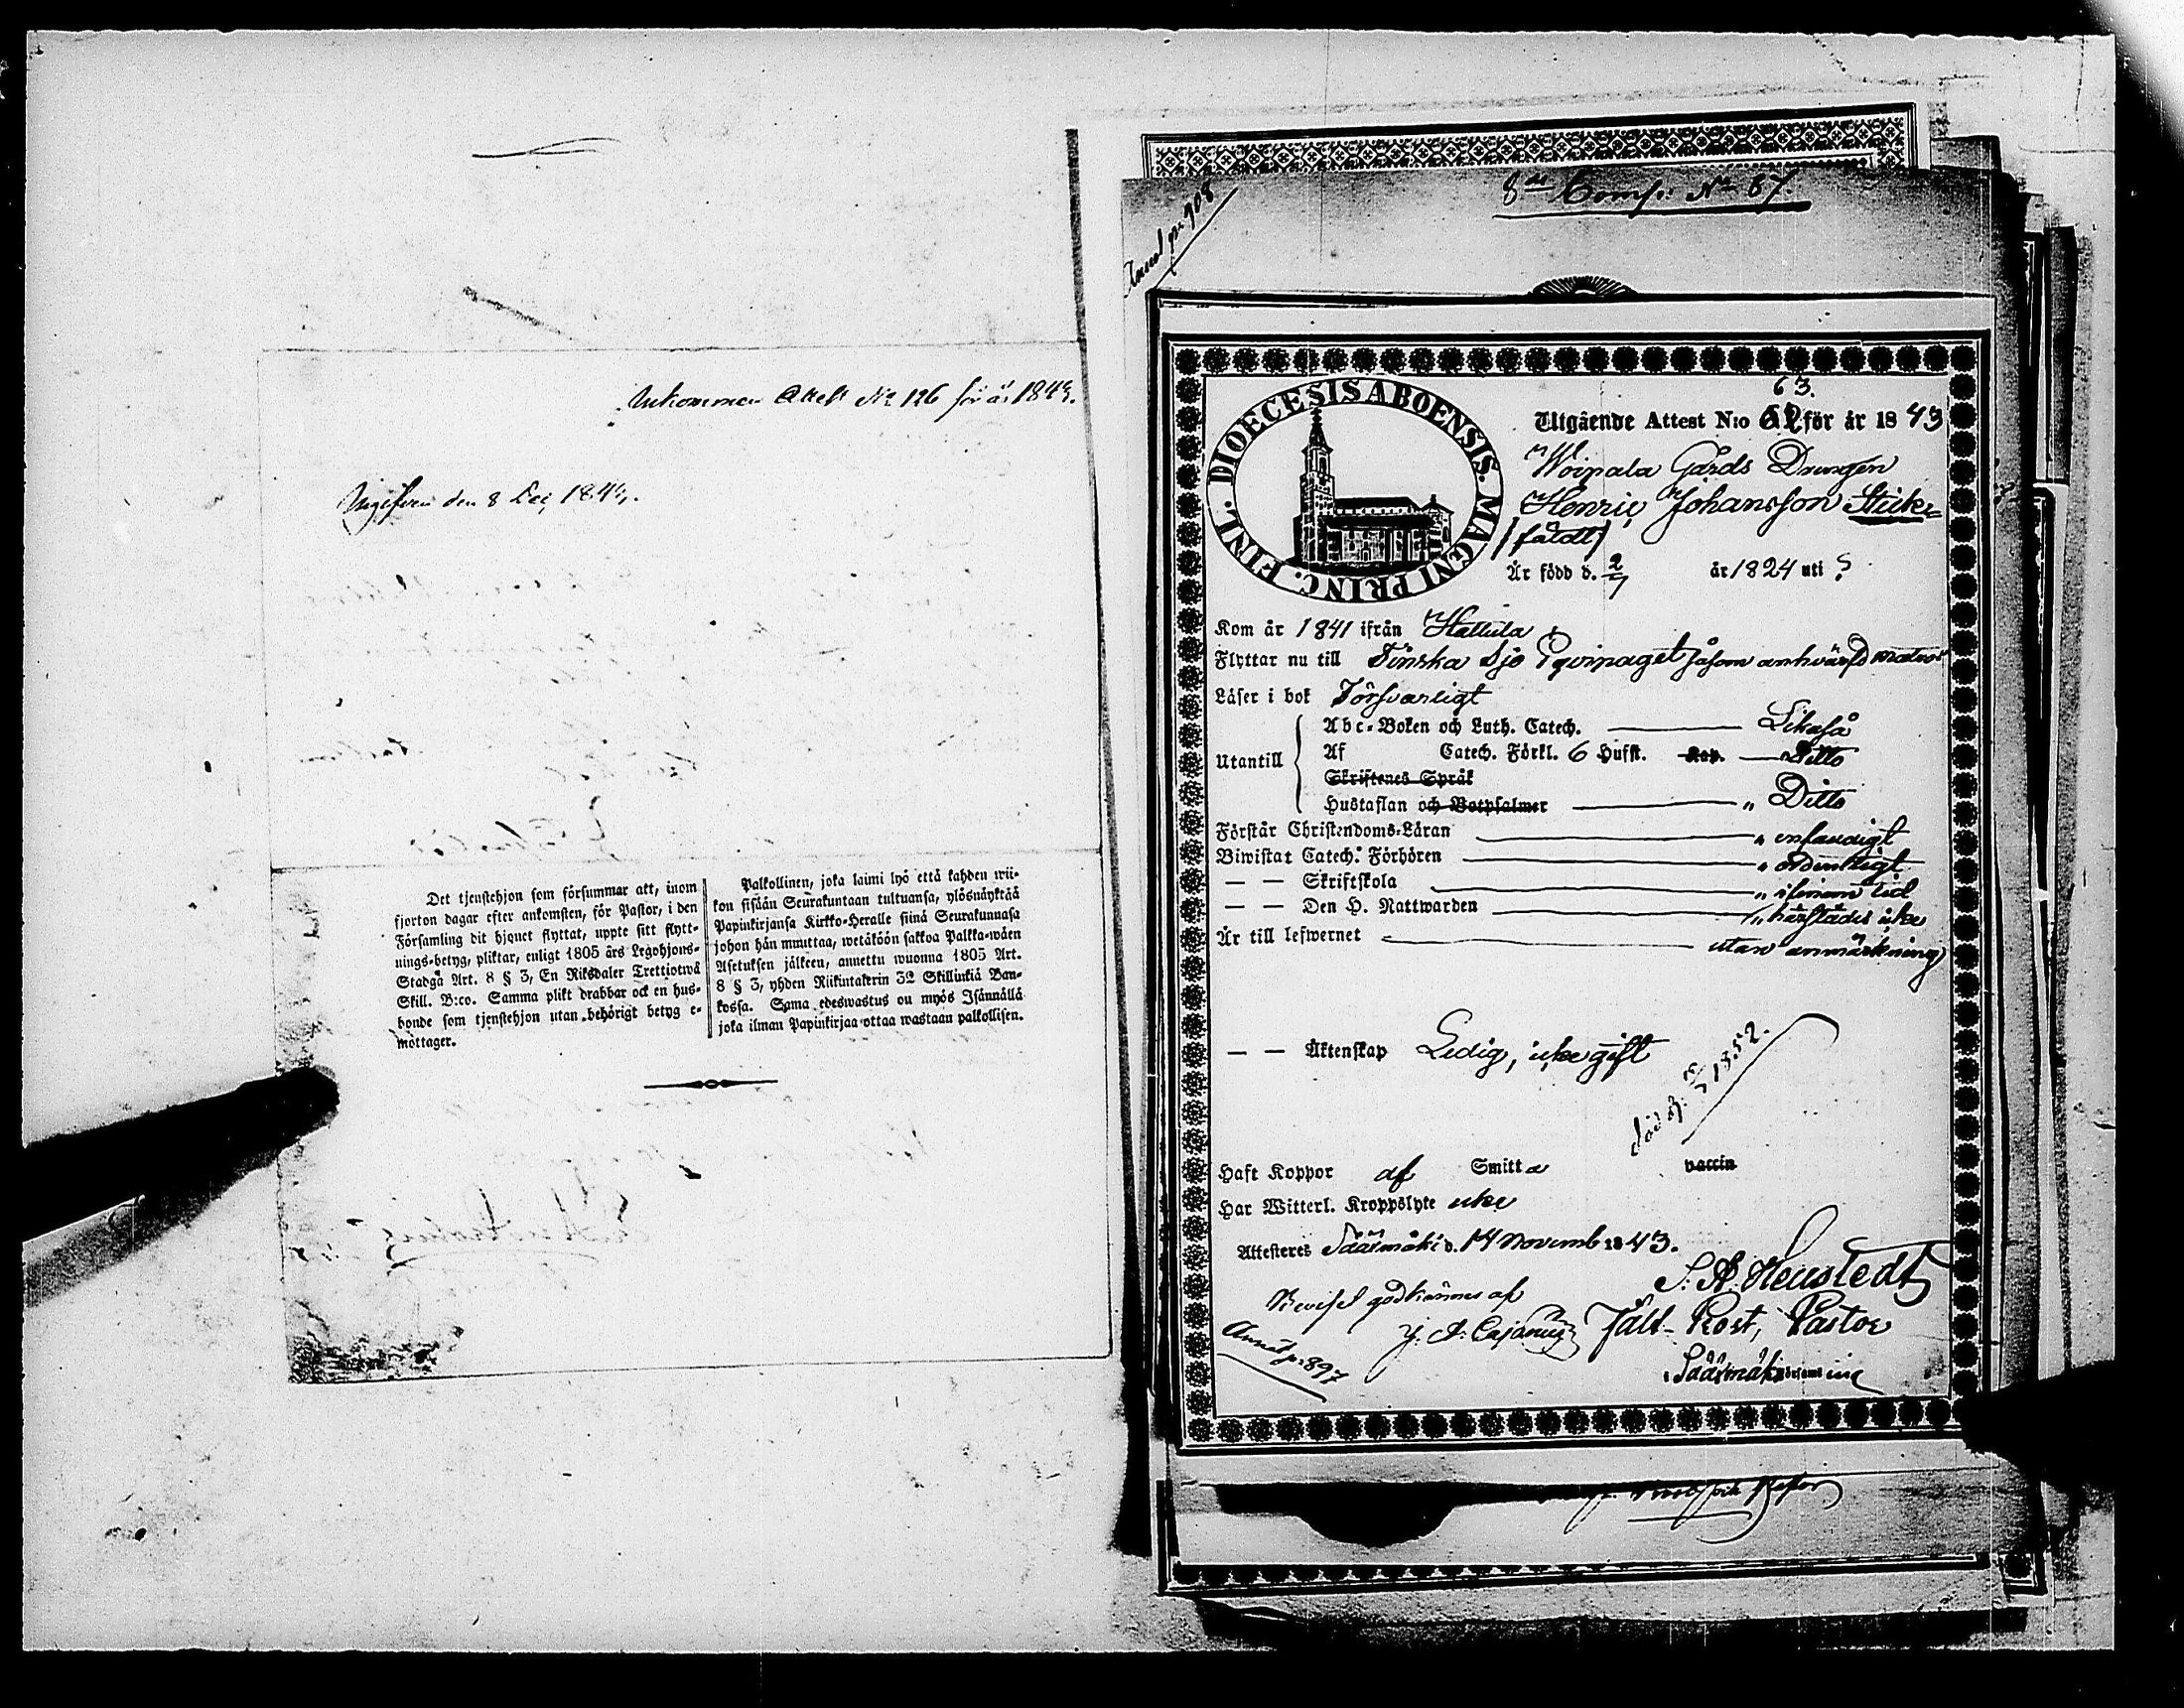 Inkommen Attest No 126 för år 1843.
den 8 Dec, 1843.
Det tjenstehjon som försummar att, inom
fjorton dagar efter ankomsten, för Pastor, i den
Församling dit hjonet flyttat, uppte sitt flytt-
nings-betyg, pliktar, enligt 1805 års Legohjons-
Stadga Art. 8 § 3, En Riksdaler Trettiotwå
Skill. B:co. Samma plikt drabbar ock en hus-
bonde som tjenstehjon utan behörigt betyg e-
mottager.
Palkollinen, joka laimi lyö että kahden wii-
kon sisään Seurakuntaan tultuansa, ylösnäyktää
Papinkirjansa Kirkko-Heralle siinä Seurakunnasa
johon hän muuttaa, wetäköön sakkoa Palkka-wäen
Asetuksen jälkeen, annettu wuonna 1805 Art.
8 § 3, yhden Riikintalerin 32 Skillinkiä Ban-
kossa. Sama edeswastus on myös Isännällä
joka ilman Papinkirjaa ottaa wastaan palkollisen.
Annot p. 908
8de Comp: No 67
DIOECESIS ABOENSIS. MAGNI PRINC. FINL.
63.
Utgående Attest N:o 62 för år 1843
Woipala Gårds Drängen
Henric Johansson Stick=
(fäldt)
År född d. 2/7 år 1824 uti ?
Kom år 1841 ifrån Hattula
Flyttar nu till Finska Sjö Eqvipaget såsom anhvärfd matros
Läser i bok Försvarligt
Utantill
Abc-Boken och Luth. Catech. Likaså
Af Catech. Förkl. 6 Hufst. Kap. Ditto
Skriftenes Språk
Hustaflan och Botpsalmer " Ditto
Förstår Christendoms-Läran " enfaudigt
Biwistat Catech. Förhören " ordentligt
— — Skriftskola " i sinom tid
— — Den H. Nattwarden " härstädes icke
Är till lefwernet utan anmärkning
— — Äktenskap Ledig, icke gift
död d. 1852.
Haft Koppor af Smitta vaccin
Har Witterl. Kroppslyte icke
Attesteres Sääsmäki d. 14 Novemb 1843.
S. A. Heustedt
Fält-Prost, Pastor
i Sääsmäki församling
Beviset godkännes af
J. A. Cajanus
Annot p. 897